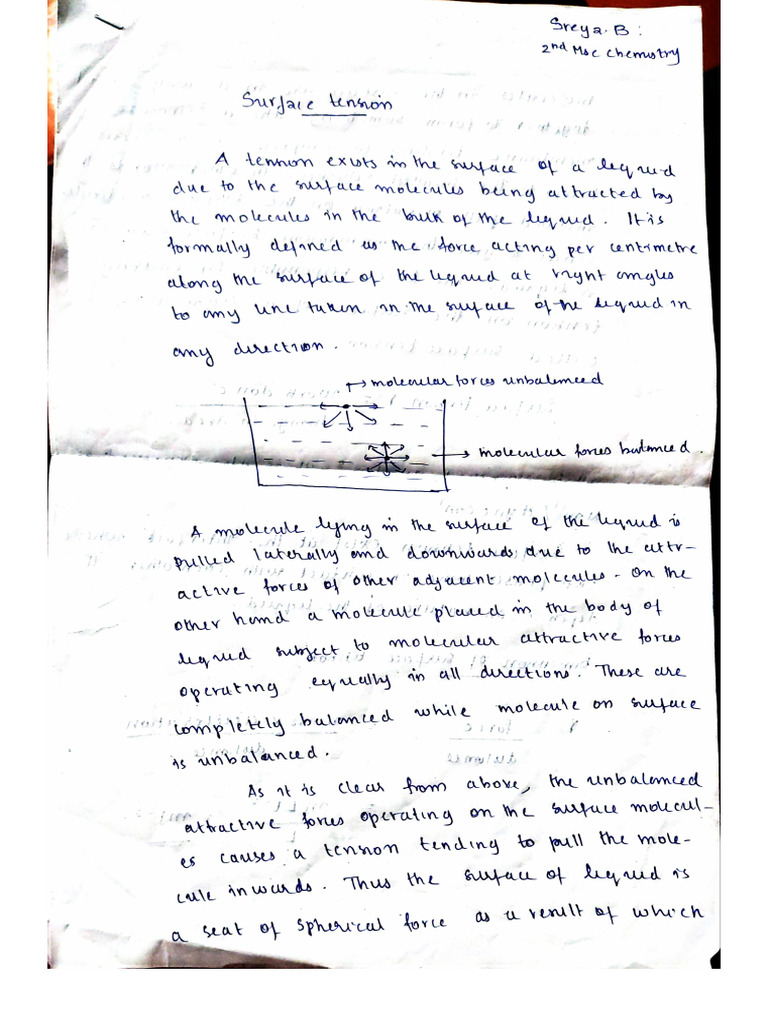 Sreya. B :
2nd Msc Chemistry
Surface tension
A tension exists in the surface of a liquid
due to the surface molecules being attracted by
the molecules in the bulk of the liquid. It is
formally defined as the force acting per centimetre
along the surface of the liquid at right angles
to any line taken in the surface of the liquid in
any direction.
molecular forces unbalanced
molecular forces balanced.
A molecule lying in the surface of the liquid is
pulled laterally and downwards due to the attr-
active forces of other adjacent molecules. On the
other hand a molecule placed in the body of
liquid subject to molecular attractive forces
operating equally in all directions. These are
completely balanced while molecule on surface
is unbalanced.
As it is clear from above, the unbalanced
attractive forces operating on the surface molecul-
es causes a tension tending to pull the mole-
cule inwards. Thus the surface of liquid is
a seat of spherical force as a result of which